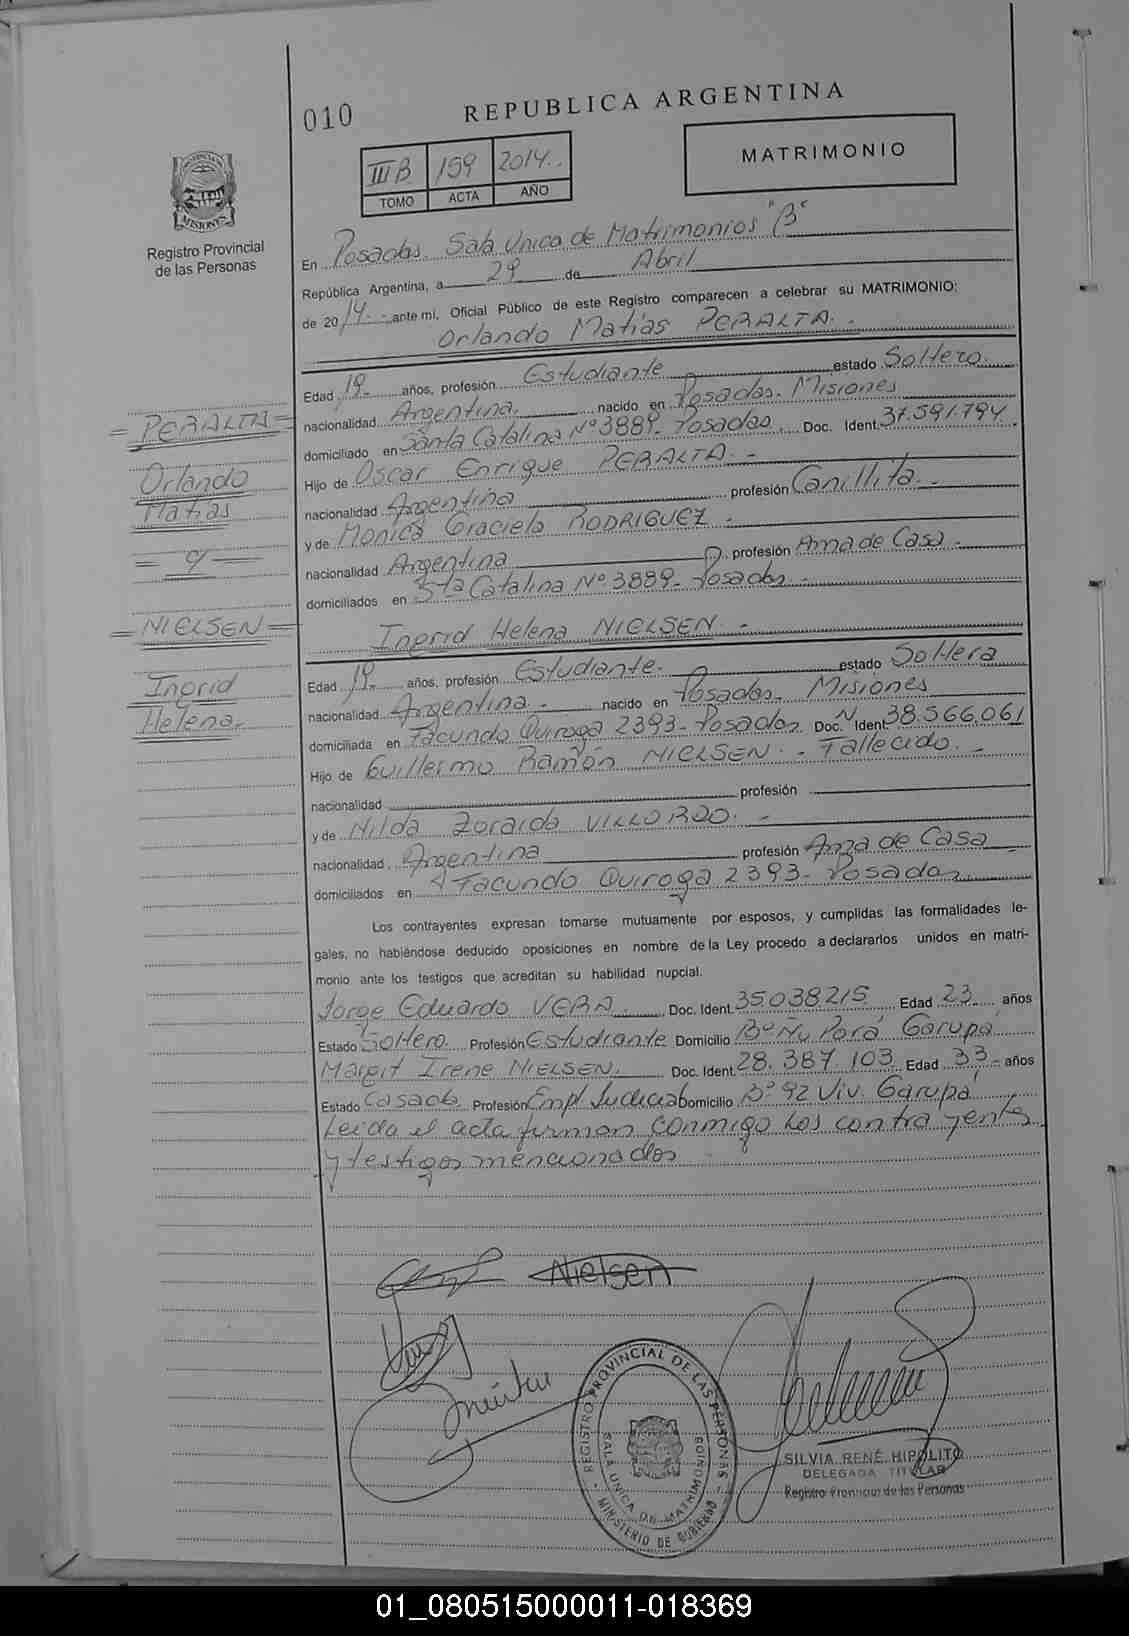 010
REPUBLICA ARGENTINA
III B 159 2014
TOMO ACTA AÑO
MATRIMONIO
PROVINCIA DE MISIONES
Registro Provincial
de las Personas
En Posadas. Sala Unica de Matrimonios "B"
República Argentina, a 29 de Abril
de 2014.- ante mi, Oficial Público de este Registro comparecen a celebrar su MATRIMONIO:
Orlando Matias PERALTA.-
Edad 19.- años, profesión Estudiante estado Soltero.
nacionalidad Argentina. nacido en Posadas. Misiones
domiciliado en Santa Catalina Nº 3889- Posadas. Doc. Ident. 37.591.794.
Hijo de Oscar Enrique PERALTA.-
nacionalidad Argentina profesión Canillita.-
y de Monica Graciela RODRIGUEZ.-
nacionalidad Argentina profesión Ama de Casa.-
domiciliados en Sta Catalina Nº 3889- Posadas.-
= PERALTA =
Orlando
Matias
= y =
= NIELSEN =
Ingrid
Helena.-
Ingrid Helena NIELSEN.-
Edad 19.- años, profesión Estudiante. estado Soltera
nacionalidad Argentina.- nacido en Posadas. Misiones
domiciliada en Facundo Quiroga 2393- Posadas Doc. N Ident. 38.566.061
Hijo de Guillermo Ramón NIELSEN.- Fallecido.-
nacionalidad profesión
y de Nilda Zoraida VILLORDO.-
nacionalidad Argentina profesión Ama de Casa
domiciliados en Facundo Quiroga 2393- Posadas.
Los contrayentes expresan tomarse mutuamente por esposos, y cumplidas las formalidades le-
gales, no habiéndose deducido oposiciones en nombre de la Ley procedo a declararlos unidos en matri-
monio ante los testigos que acreditan su habilidad nupcial.
Jorge Eduardo VERA. Doc. Ident. 35.038.215. Edad 23 años
Estado Soltero Profesión Estudiante Domicilio Bº Ñu Porá Garupá
Margit Irene NIELSEN. Doc. Ident. 28.387.103 Edad 33- años
Estado Casada Profesión Empl Judicial Domicilio Bº 92 Viv. Garupá
Leida el acta firman conmigo los contrayentes
y testigos mencionados
Nielsen
REGISTRO PROVINCIAL DE LAS PERSONAS
SALA UNICA DE MATRIMONIOS
MINISTERIO DE GOBIERNO
SILVIA RENÉ HIPOLITO
DELEGADA TITULAR
Registro Provincial de las Personas
01_080515000011-018369